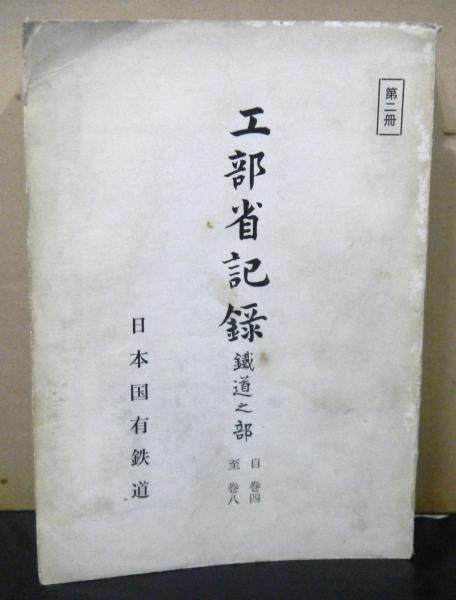 第二冊
工部省記録
鐵道之部
自 巻四
至 巻八
日本国有鉄道